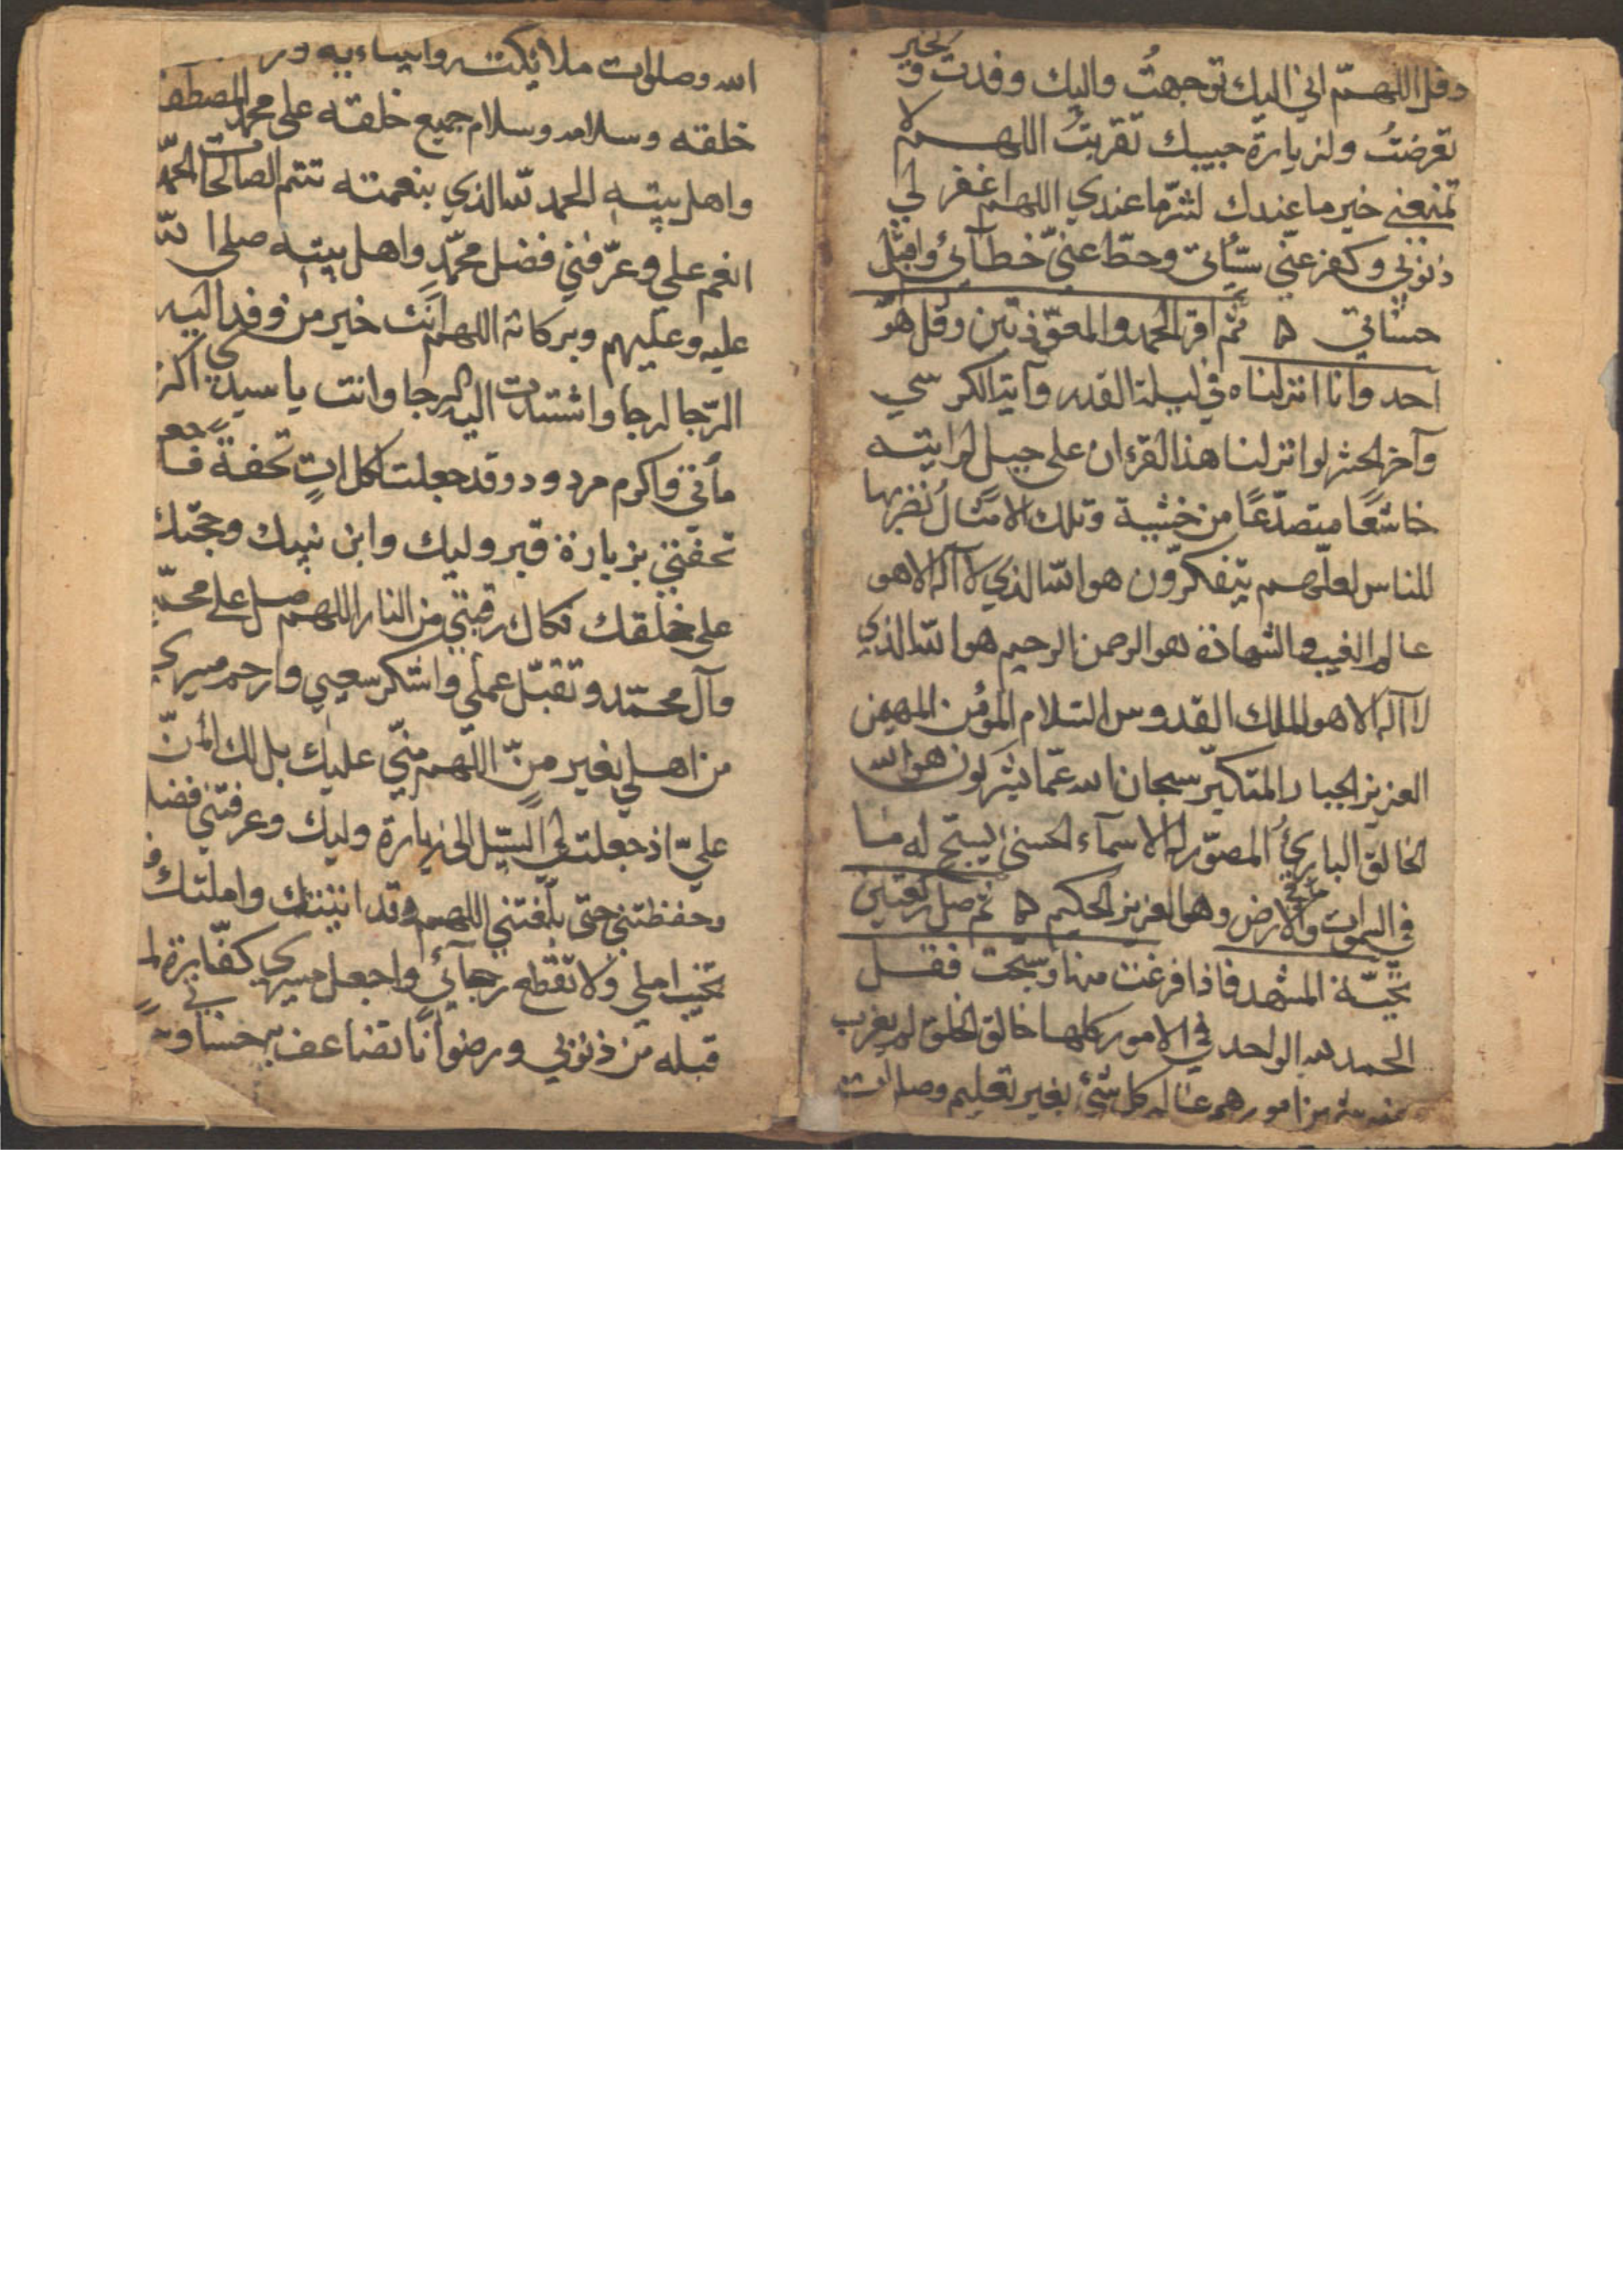 وقل اللهمّ اني اليك توجهتُ واليك وفدت و لخير
تعرضتُ ولزيارة حبيبك تقربتُ اللهم لا
تمنعني خير ما عندك لشرّ ما عندي اللهم اغفر لي
ذنوبي وكفر عنّي سيّئاتي وحطّ عنّي خطآئي واقبل
حسناتي ثم اقرء الحمد والمعوّذتين وقل هو
احد وانا انزلناه في ليلة القدر وآية الكرسي
وآخر الحشر لو انزلنا هذا القرءان على جبل لرايته
خاشعًا متصدّعًا من خشية وتلك الامثال نضربها
للناس لعلّهم يتفكرّون هو الله الذي لا آله الا هو
عالم الغيب والشهادة هو الرحمن الرحيم هو الله الذي
لا آله الا هو الملك القدوس السلام المؤمن المهيمن
العزيز الجبار المتكبّر سبحان الله عمّا يشركون هو الله
الخالق الباريُ المصوّر له الاسماء الحسنى يسبح له ما
في السموات والارض وهو العزيز الحكيم ثم صل ركعتين
تحيّة المشهد فاذا فرغت منها وسبّحت فقل
الحمد لله الواحد في الامور كلها خالق الخلق لم يغرب
من امورهم عالم كل شئ بغير تعليم وصلوات
الله وصلوات ملائكته وانبياءيه
خلقه وسلامه وسلام جميع خلقه على محمد المصطفى
واهل بيته الحمد لله الذي بنعمته تتم الصالحات الحمد
انعم علي وعرّفني فضل محمّد واهل بيته صلى الله
عليه وعليهم وبركاته اللهم انت خير من وفد اليه
الرّجال لرجا واشتدت اليه الرجا وانت يا سيدي اكرم
مأتي واكرم مردود وقد جعلت لكل اتٍ تحفةً فاجعل
تحفتي بزيارة قبر وليك وابن نبيك وحجّتك
على خلقك فكاك رقبتي من النار اللهم صل على محمّد
وآل محمّد وتقبّل عملي واشكر سعيي وارحم مسيري
من اهلي بغير منّ اللّهم منّي عليك بل لك المنّ
عليّ اذ جعلت لي السّبيل الى زيارة وليك وعرفتني فضله
وحفظتني حتى بلّغتني اللهم وقد اتيتك واملتك فلا
تخيّب املي ولا تقطع رجآئي واجعل مسيري كفّارة لما
قبله من ذنوبي ورضوانًا تضاعف به حسناتي